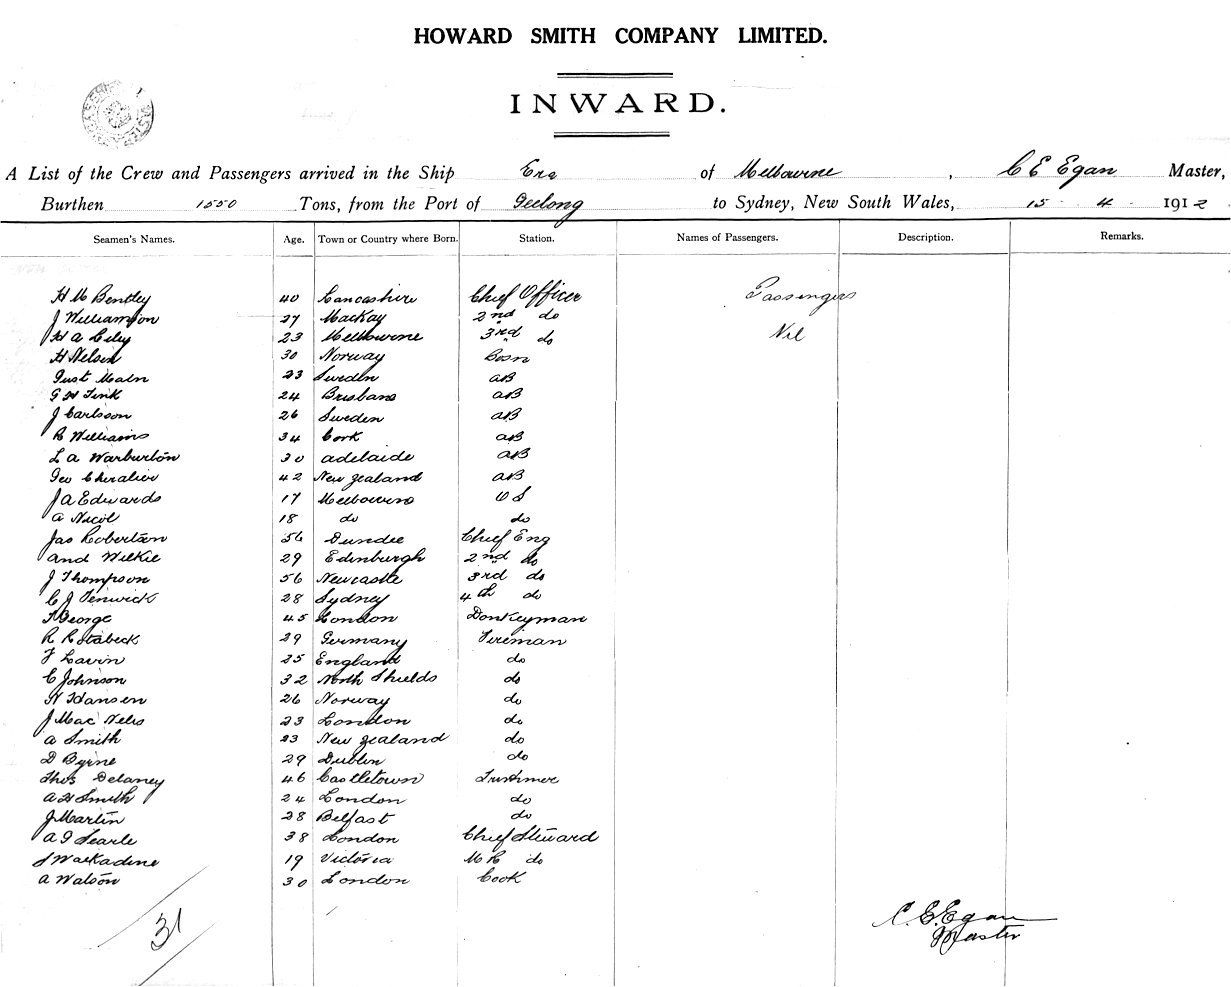 HOWARD SMITH COMPANY LIMITED.
INWARD.
A List of the Crew and Passengers arrived in the Ship Era of Melbourne, C E Egan Master,
Burthen 1550 Tons, from the Port of Geelong to Sydney, New South Wales, 15 - 4 - 1912
Seamen's Names. Age. Town or Country where Born. Station. Names of Passengers. Description. Remarks.
H M Bentley 40 Lancashire Chief Officer Passengers
J Williamson 27 Mackay 2nd do
H A 23 Melbourne 3rd do Nil
H Nelsen 30 Norway Bosn
Gust Malm 23 Sweden AB
G H Tink 24 Brisbane AB
J Carlsson 26 Sweden AB
R Williams 34 Cork AB
L A Warburton 30 Adelaide AB
Geo Chevalier 42 New Zealand AB
J A Edwards 17 Melbourne O S
A Nicol 18 do do
Jas Robertson 56 Dundee Chief Eng
And Wilkie 29 Edinburgh 2nd do
J Thompson 56 Newcastle 3rd do
C J Fenwick 28 Sydney 4th do
George 45 London Donkeyman
R 29 Germany Fireman
F Lavin 25 England do
C Johnson 32 North Shields do
H Hansen 26 Norway do
J Mac Nelis 23 London do
A Smith 23 New Zealand do
D Byrne 29 Dublin do
Thos Delaney 46 Castletown Trimmer
A H Smith 24 London do
J Martin 28 Belfast do
A J Searle 38 London Chief Steward
S Warkadine 19 Victoria M R do
A Watson 30 London Cook
31
C. E. Egan
Master